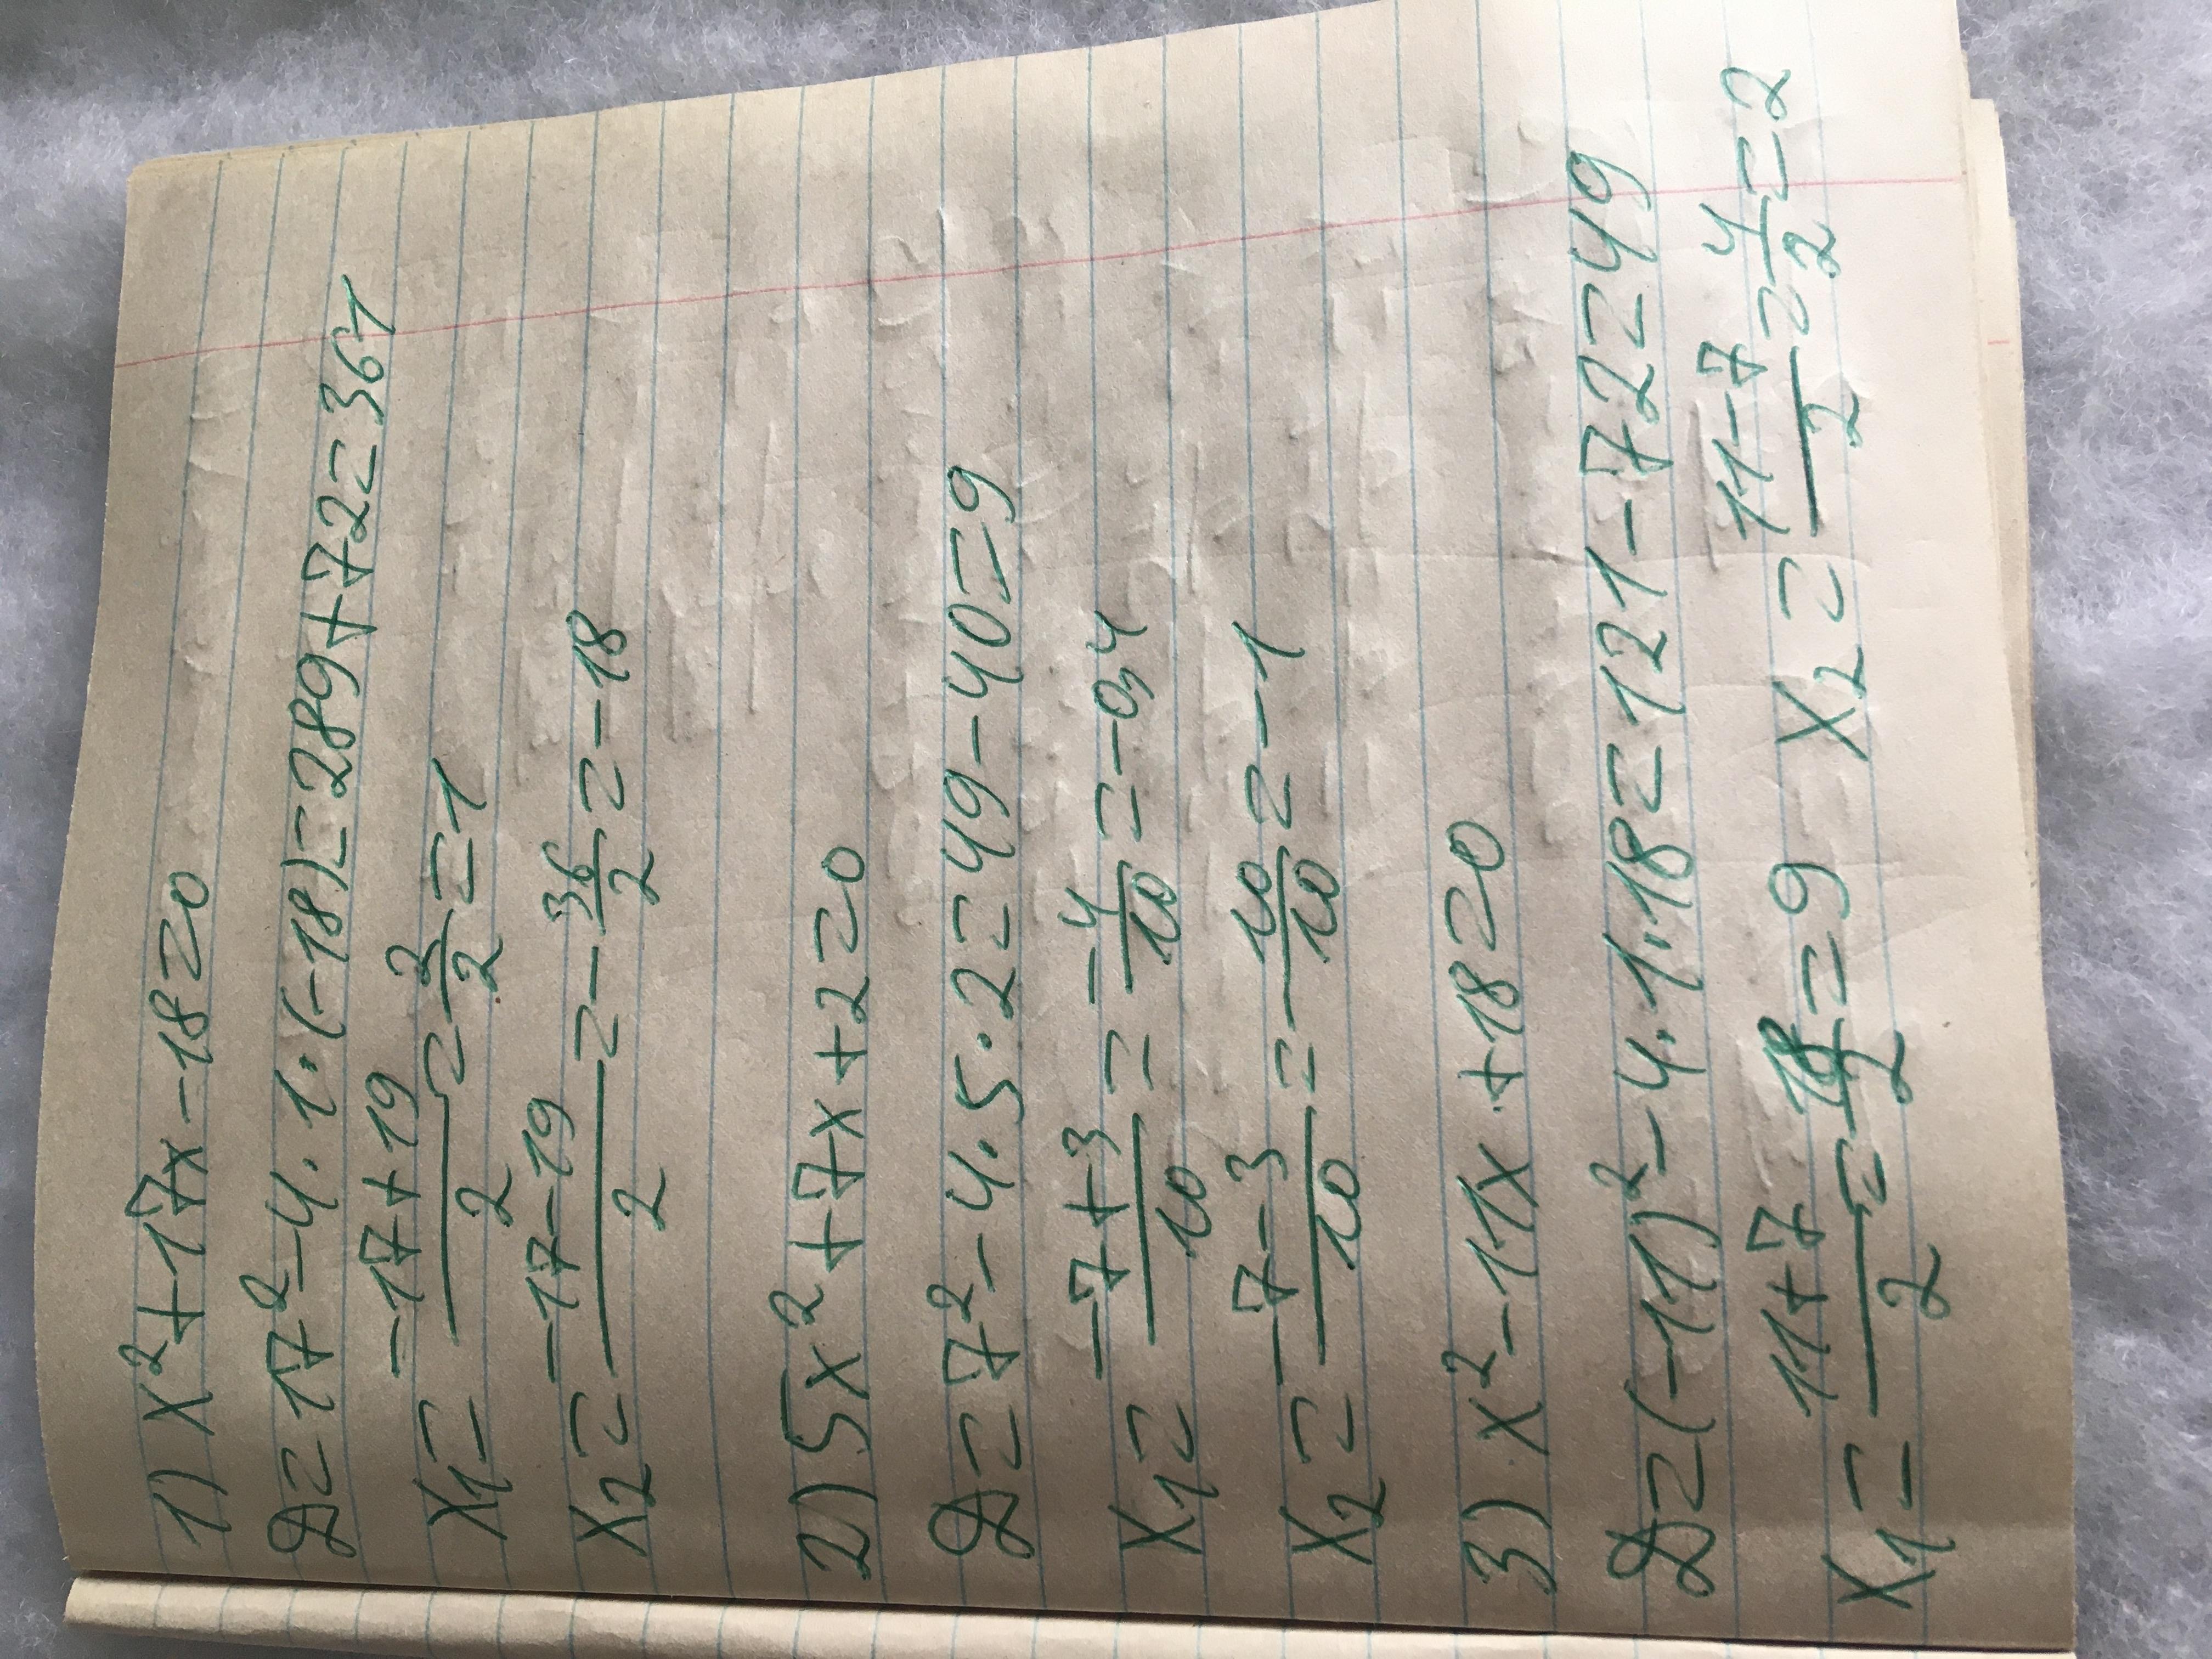 1) x²+17x-18=0
Д=17²-4·1·(-18)=289+72=361
x₁=(-17+19)/2=2/2=1
x₂=(-17-19)/2=-36/2=-18
2) 5x²+7x+2=0
Д=7²-4·5·2=49-40=9
x₁=(-7+3)/10=-4/10=-0,4
x₂=(-7-3)/10=-10/10=-1
3) x²-11x+18=0
Д=(-11)²-4·1·18=121-72=49
x₁=(11+7)/2=18/2=9 x₂=(11-7)/2=4/2=2